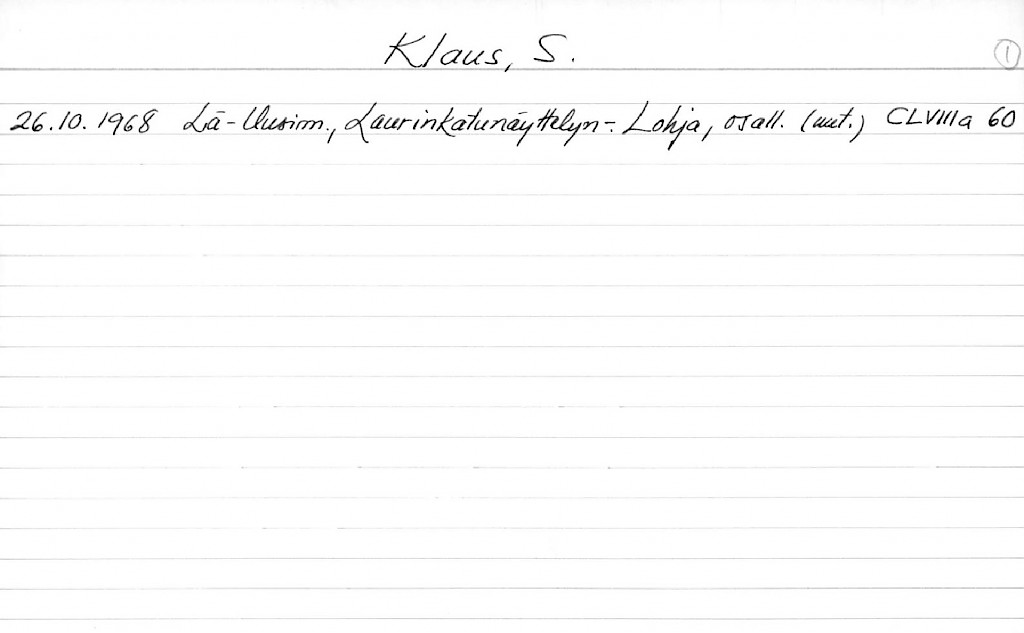 Klaus, S.
1
26.10.1968 Lä-Uusim., Laurinkatunäyttelyn-: Lohja, osall. (uut.) CLVIIIa 60